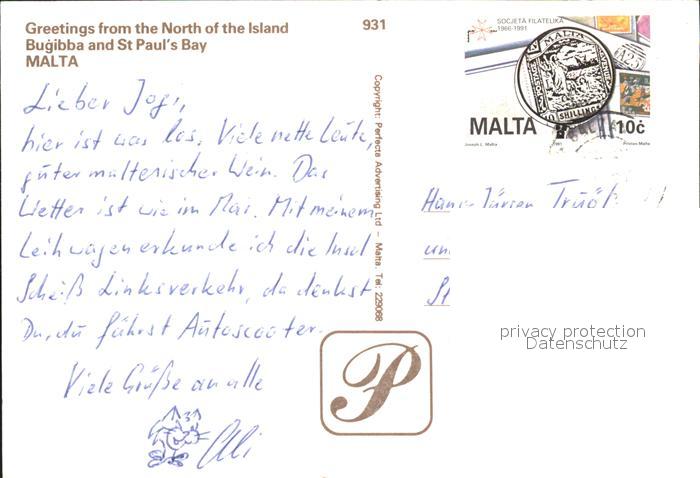 Greetings from the North of the Island
Buġibba and St Paul's Bay
MALTA
931
Lieber Jogi,
hier ist was los. Viele nette Leute,
guter maltesischer Wein. Das
Wetter ist wie im Mai. Mit meinem
Leihwagen erkunde ich die Insel
Scheiß Linksverkehr, da denkst
Du, du fährst Autoscooter.
Viele Grüße an alle
Copyright: Perfecta Advertising Ltd – Malta. Tel: 229068
P
SOCJETÀ FILATELIKA
1966-1991
MALTA
SHILLINGS
MALTA
10c
Joseph L. Malta
1991
Printex Malta
Hans Jürgen
un
St
privacy protection
Datenschutz